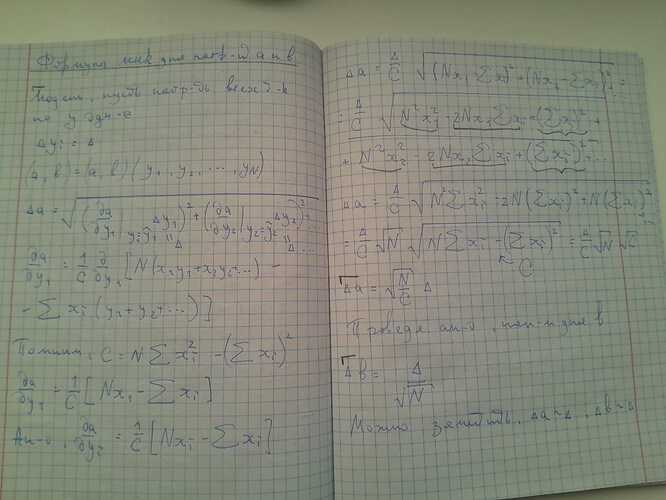 Формула мнк для погр-й a и b
Подсч., пусть погр-ть всех d-k
по y один-е
Δy_i = Δ
(a, b) = (a, b) (y_1, y_2, ..., y_N)
Δa = √((∂a/∂y_1 |_{y_1=ỹ_1} Δy_1)^2 + (∂a/∂y_2 |_{y_2=ỹ_2} Δy_2)^2 ...
∂a/∂y_1 = 1/C ∂/∂y_1 [N(x_1y_1+x_2y_2+...) -
- Σ x_i (y_1+y_2+...)]
Помним, C = N Σ x_i^2 - (Σ x_i)^2
∂a/∂y_1 = 1/C [Nx_1 - Σ x_i]
Ан-о, ∂a/∂y_i = 1/C [Nx_i - Σ x_i]
Δa = Δ/C √((Nx_1-Σx_i)^2 + (Nx_2-Σx_i)^2 ... =
= Δ/C √(N^2x_1^2 - 2Nx_1Σx_i + (Σx_i)^2 +
+ N^2x_2^2 - 2Nx_2Σx_i + (Σx_i)^2 + ...
Δa = Δ/C √(N^2Σx_i^2 - 2N(Σx_i)^2 + N(Σx_i)^2) =
= Δ/C √N √(NΣx_i^2 - (Σx_i)^2) = Δ/C √N √C
C
Δa = √(N/C) Δ
Проведя ан-о, поп-и для b
Δb = Δ/√N
Можно заметить, Δa~Δ, Δb~Δ